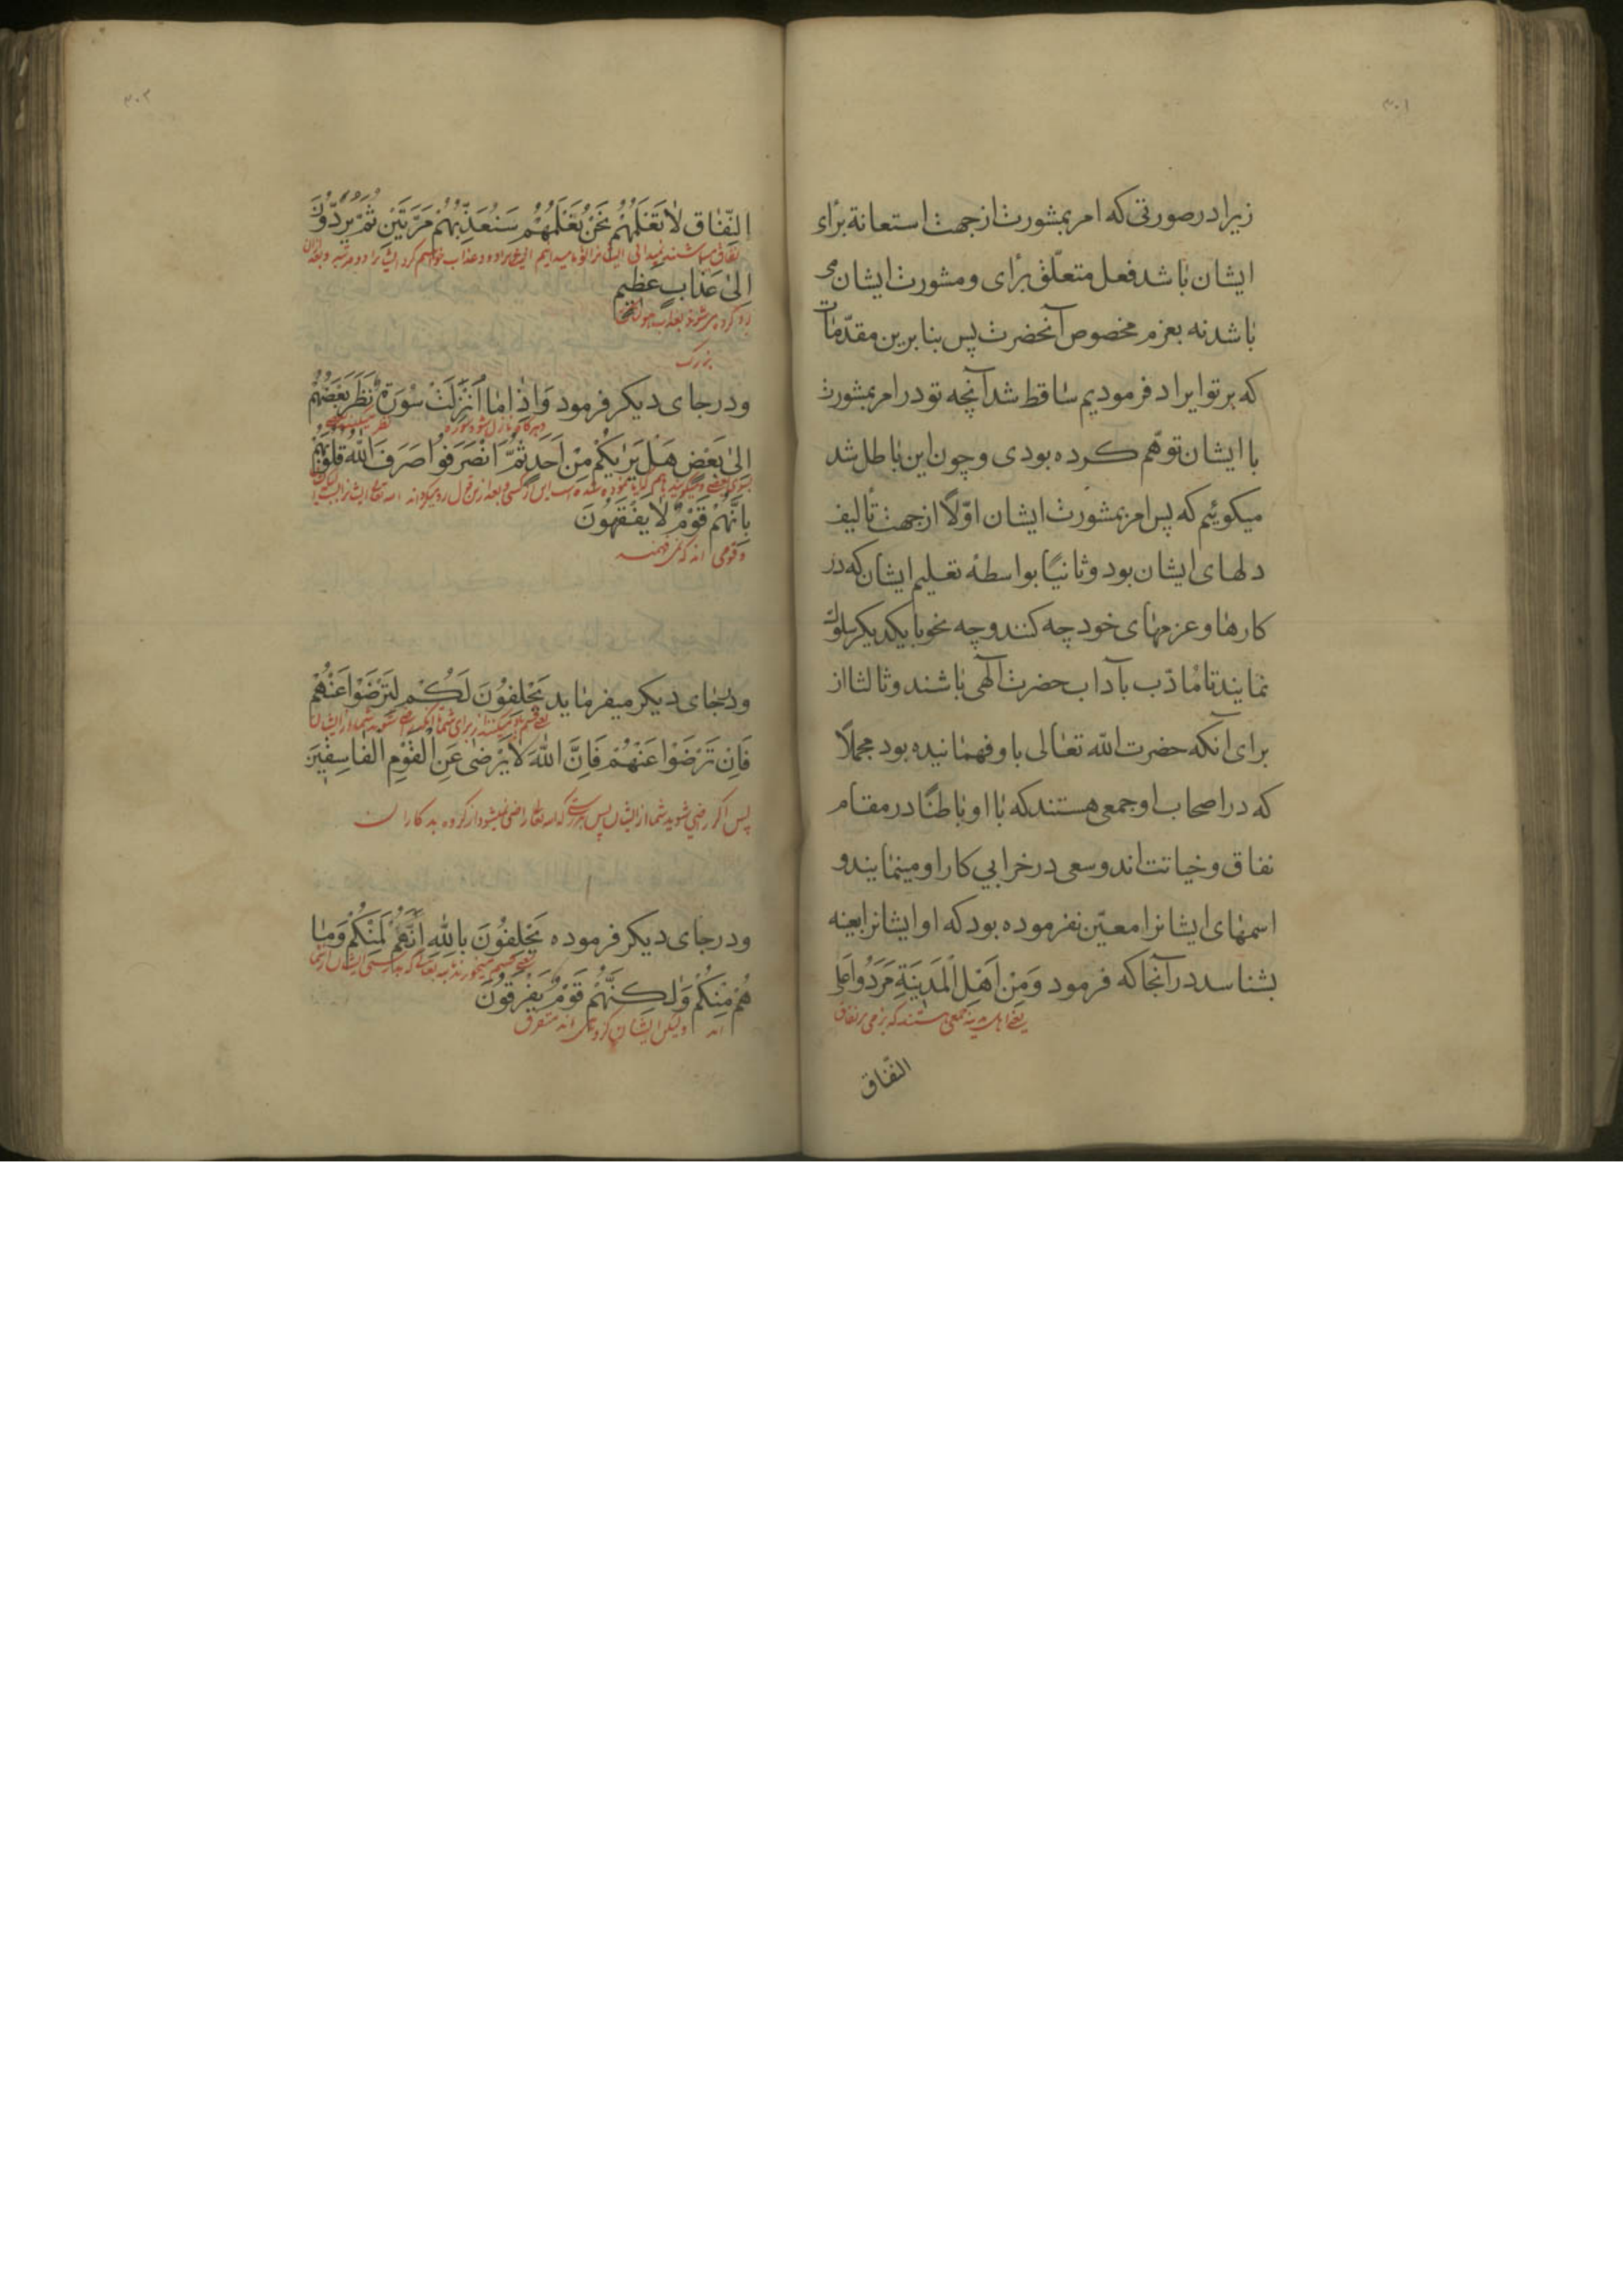 ۳۰۱
زیرا در صورتی که امر بمشورت از جهت استعانة برای
ایشان باشد فعل متعلّق برای و مشورت ایشان می
باشد نه بعزم مخصوص آنحضرت پس بنا برین مقدّمات
که بر تو ایراد فرمودیم ساقط شد آنچه تو در امر بمشورت
با ایشان توهّم کرده بودی و چون این باطل شد
میکوئیم که پس امر بمشورت ایشان اوّلاً از جهت تألیف
دلهای ایشان بود و ثانیاً بواسطهٔ تعلیم ایشان که در
کارها و عزمهای خود چه کنند و چه نحو با یکدیکر سلوک
نمایند تا مُادّب بآداب حضرت آلهی باشند و ثالثا از
برای آنکه حضرت الله تعالی باو فهمانیده بود مجملاً
که در اصحاب او جمعی هستند که با او باطنًا در مقام
نفاق و خیانت اند و سعی در خرابی کار او مینمایند و
اسمهای ایشانرا معیّن نفرموده بود که او ایشانرا بعینه
بشناسد در آنجا که فرمود وَمِنْ اَهْلِ الْمَدینَةِ مَرَدُوا عَلَی
یعنی از اهل مدینه جمعی هستند که بر نفاق
النّفاق
۳۰۲
النِّفاقِ لاٰ تَعْلَمُهُمْ نَحْنُ نَعْلَمُهُمْ سَنُعَذِّبُهُمْ مَرَّتَیْنِ ثُمَّ یُرَدُّونَ
نفاق میباشند نمیدانی ایشانرا تو ما میدانیم ایشانرا زود عذاب خواهیم کرد ایشانرا دو مرتبه و بعد از آن
اِلیٰ عَذابٍ عَظیمٍ
رد کرده می‌شوند بعذاب
بزرک
و در جای دیکر فرمود وَاِذٰا مٰا اُنْزِلَتْ سُورَةٌ نَظَرَ بَعْضُهُمْ
و هرکاه نازل شود سوره نظر میکند بعضی
اِلیٰ بَعْضٍ هَلْ یَرٰیکُمْ مِنْ اَحَدٍ ثُمَّ انْصَرَفُوا صَرَفَ اللهُ قُلُوبَهُمْ
بسوی بعضی و میکویند باهم که آیا
بِاَنَّهُمْ قَوْمٌ لاٰ یَفْقَهُونَ
قومی اند که نمی فهمند
و در جای دیکر میفرماید یَحْلِفُونَ لَکُمْ لِتَرْضَوْا عَنْهُمْ
یعنی قسم یاد میکنند از برای شما تا آنکه راضی شوید شما از ایشان
فَاِنْ تَرْضَوْا عَنْهُمْ فَاِنَّ اللهَ لاٰ یَرْضیٰ عَنِ الْقَوْمِ الْفٰاسِقینَ
پس اکر راضی شوید شما از ایشان پس بدرستی که الله تعالی راضی نمیشود از کروه بد کاران
و در جای دیکر فرموده یَحْلِفُونَ بِاللهِ اِنَّهُمْ لَمِنْکُمْ وَمٰا
یعنی قسم میخورند بالله تعالی که بدرستی ایشان از شما
هُمْ مِنْکُمْ وَلٰکِنَّهُمْ قَوْمٌ یَفْرَقُونَ
اند ولیکن ایشان کروهی اند متفرق